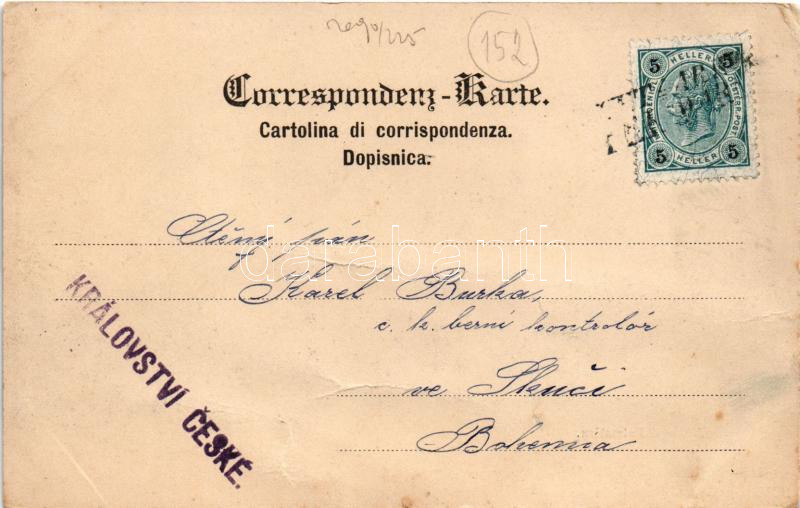 152
Correspondenz-Karte.
Cartolina di corrispondenza.
Dopisnica.
5 HELLER 5
OESTERR. POST
5 HELLER 5
Ctěný pán
Karel Burka,
c. k. berní kontrolór
ve Skuči
Bohemia
KRÁLOVSTVÍ ČESKÉ.
darabanth